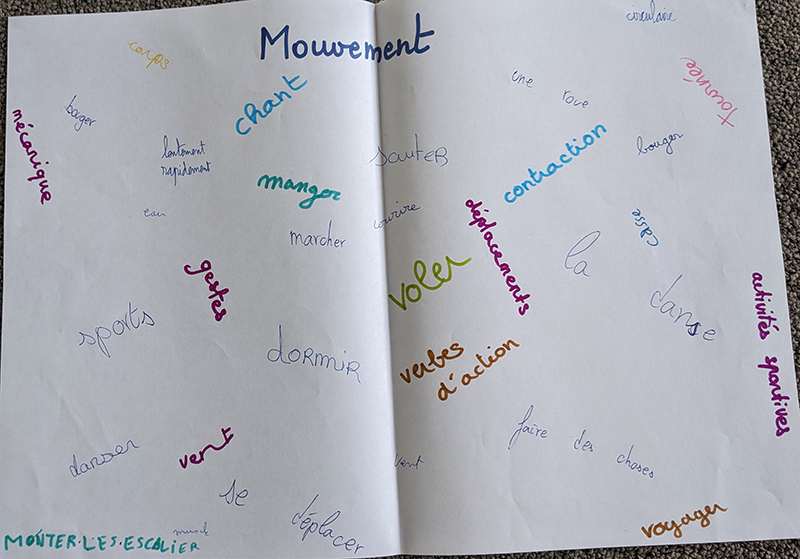 Mouvement
circulaire
corps
tournée
chant
une roue
bouger
mécanique
lentement
rapidement
sauter
contraction
bouger
manger
eau
courrire
déplacements
marcher
casse
la danse
gestes
voler
activités sportives
sports
dormir
verbes
d'action
danser
vent
faire des choses
vent
se déplacer
muscle
voyager
MONTER.LES.ESCALIER